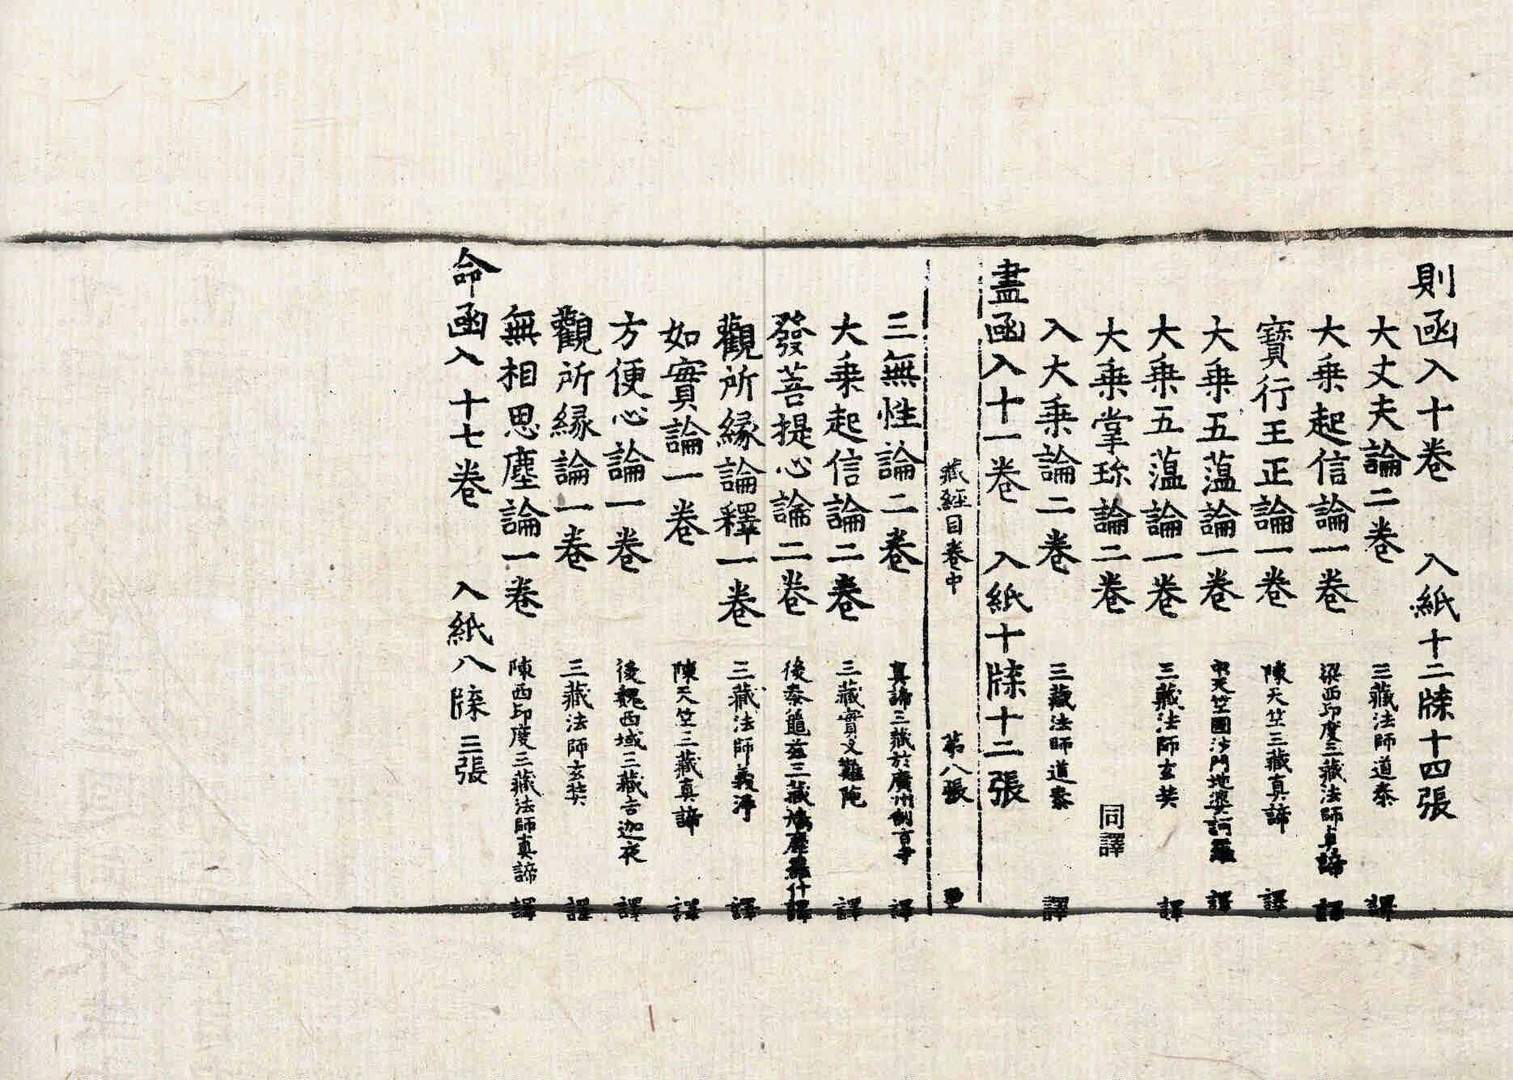 則函入十卷 入紙十二牒十四張
大丈夫論二卷 三藏法師道泰譯
大乗起信論一卷 梁西印度三藏法師真諦譯
寳行王正論一卷 陳天竺三藏真諦譯
大乗五薀論一卷 中天竺國沙門地婆訶羅譯
大乗五薀論一卷 三藏法師玄奘譯
大乗掌珎論二卷 同譯
入大乗論二卷 三藏法師道泰譯
盡函入十一卷 入紙十牒十二張
藏經目卷中 第八張
三無性論二卷 真諦三藏於廣州制旨寺譯
大乗起信論二卷 三藏實叉難陁譯
發菩提心論二卷 後秦龜茲三藏鳩摩羅什譯
觀所縁論釋一卷 三藏法師義淨譯
如實論一卷 陳天竺三藏真諦譯
方便心論一卷 後魏西域三藏吉迦夜譯
觀所縁論一卷 三藏法師玄奘譯
無相思塵論一卷 陳西印度三藏法師真諦譯
命函入十七卷 入紙八牒三張